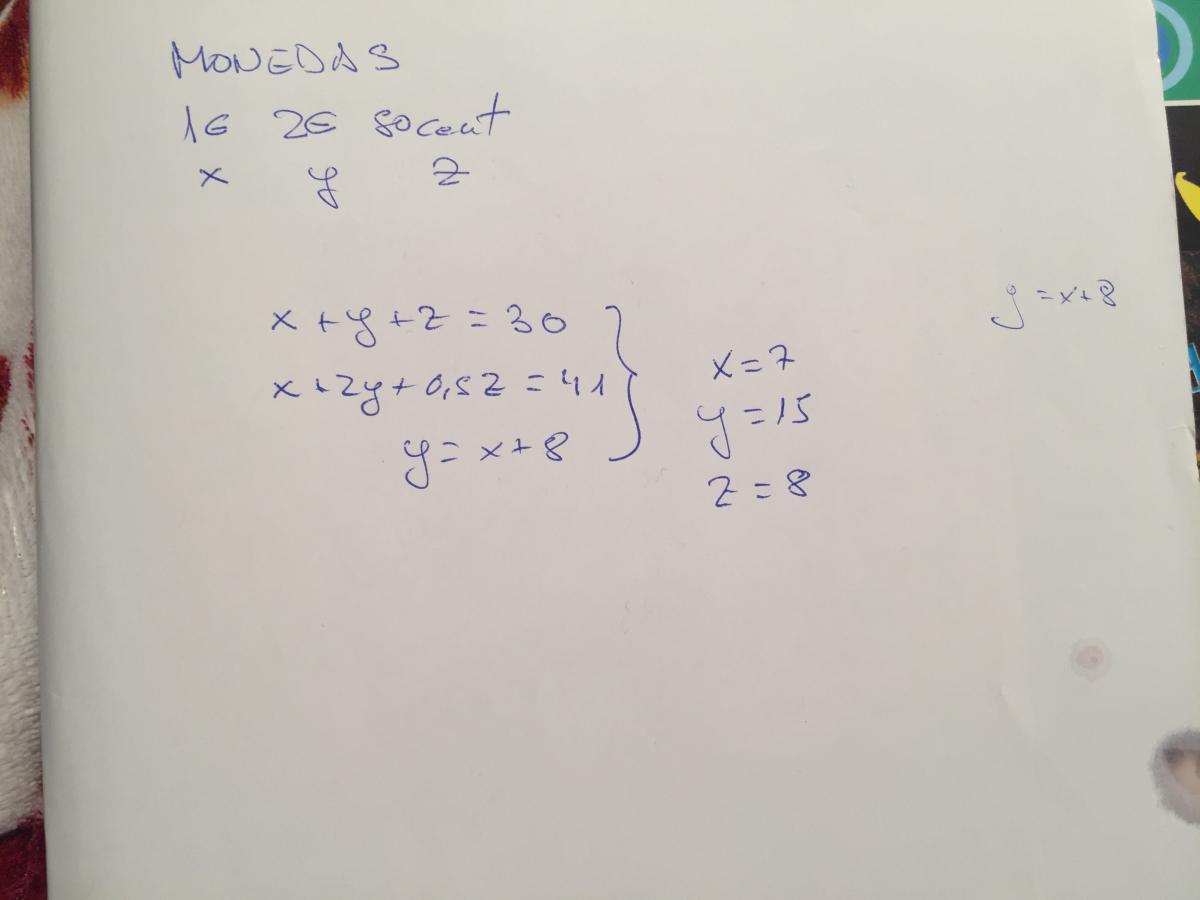 MONEDAS
1€ 2€ 50cent
x y z
x+y+z=30
x+2y+0,5z=41
y=x+8
x=7
y=15
z=8
y=x+8